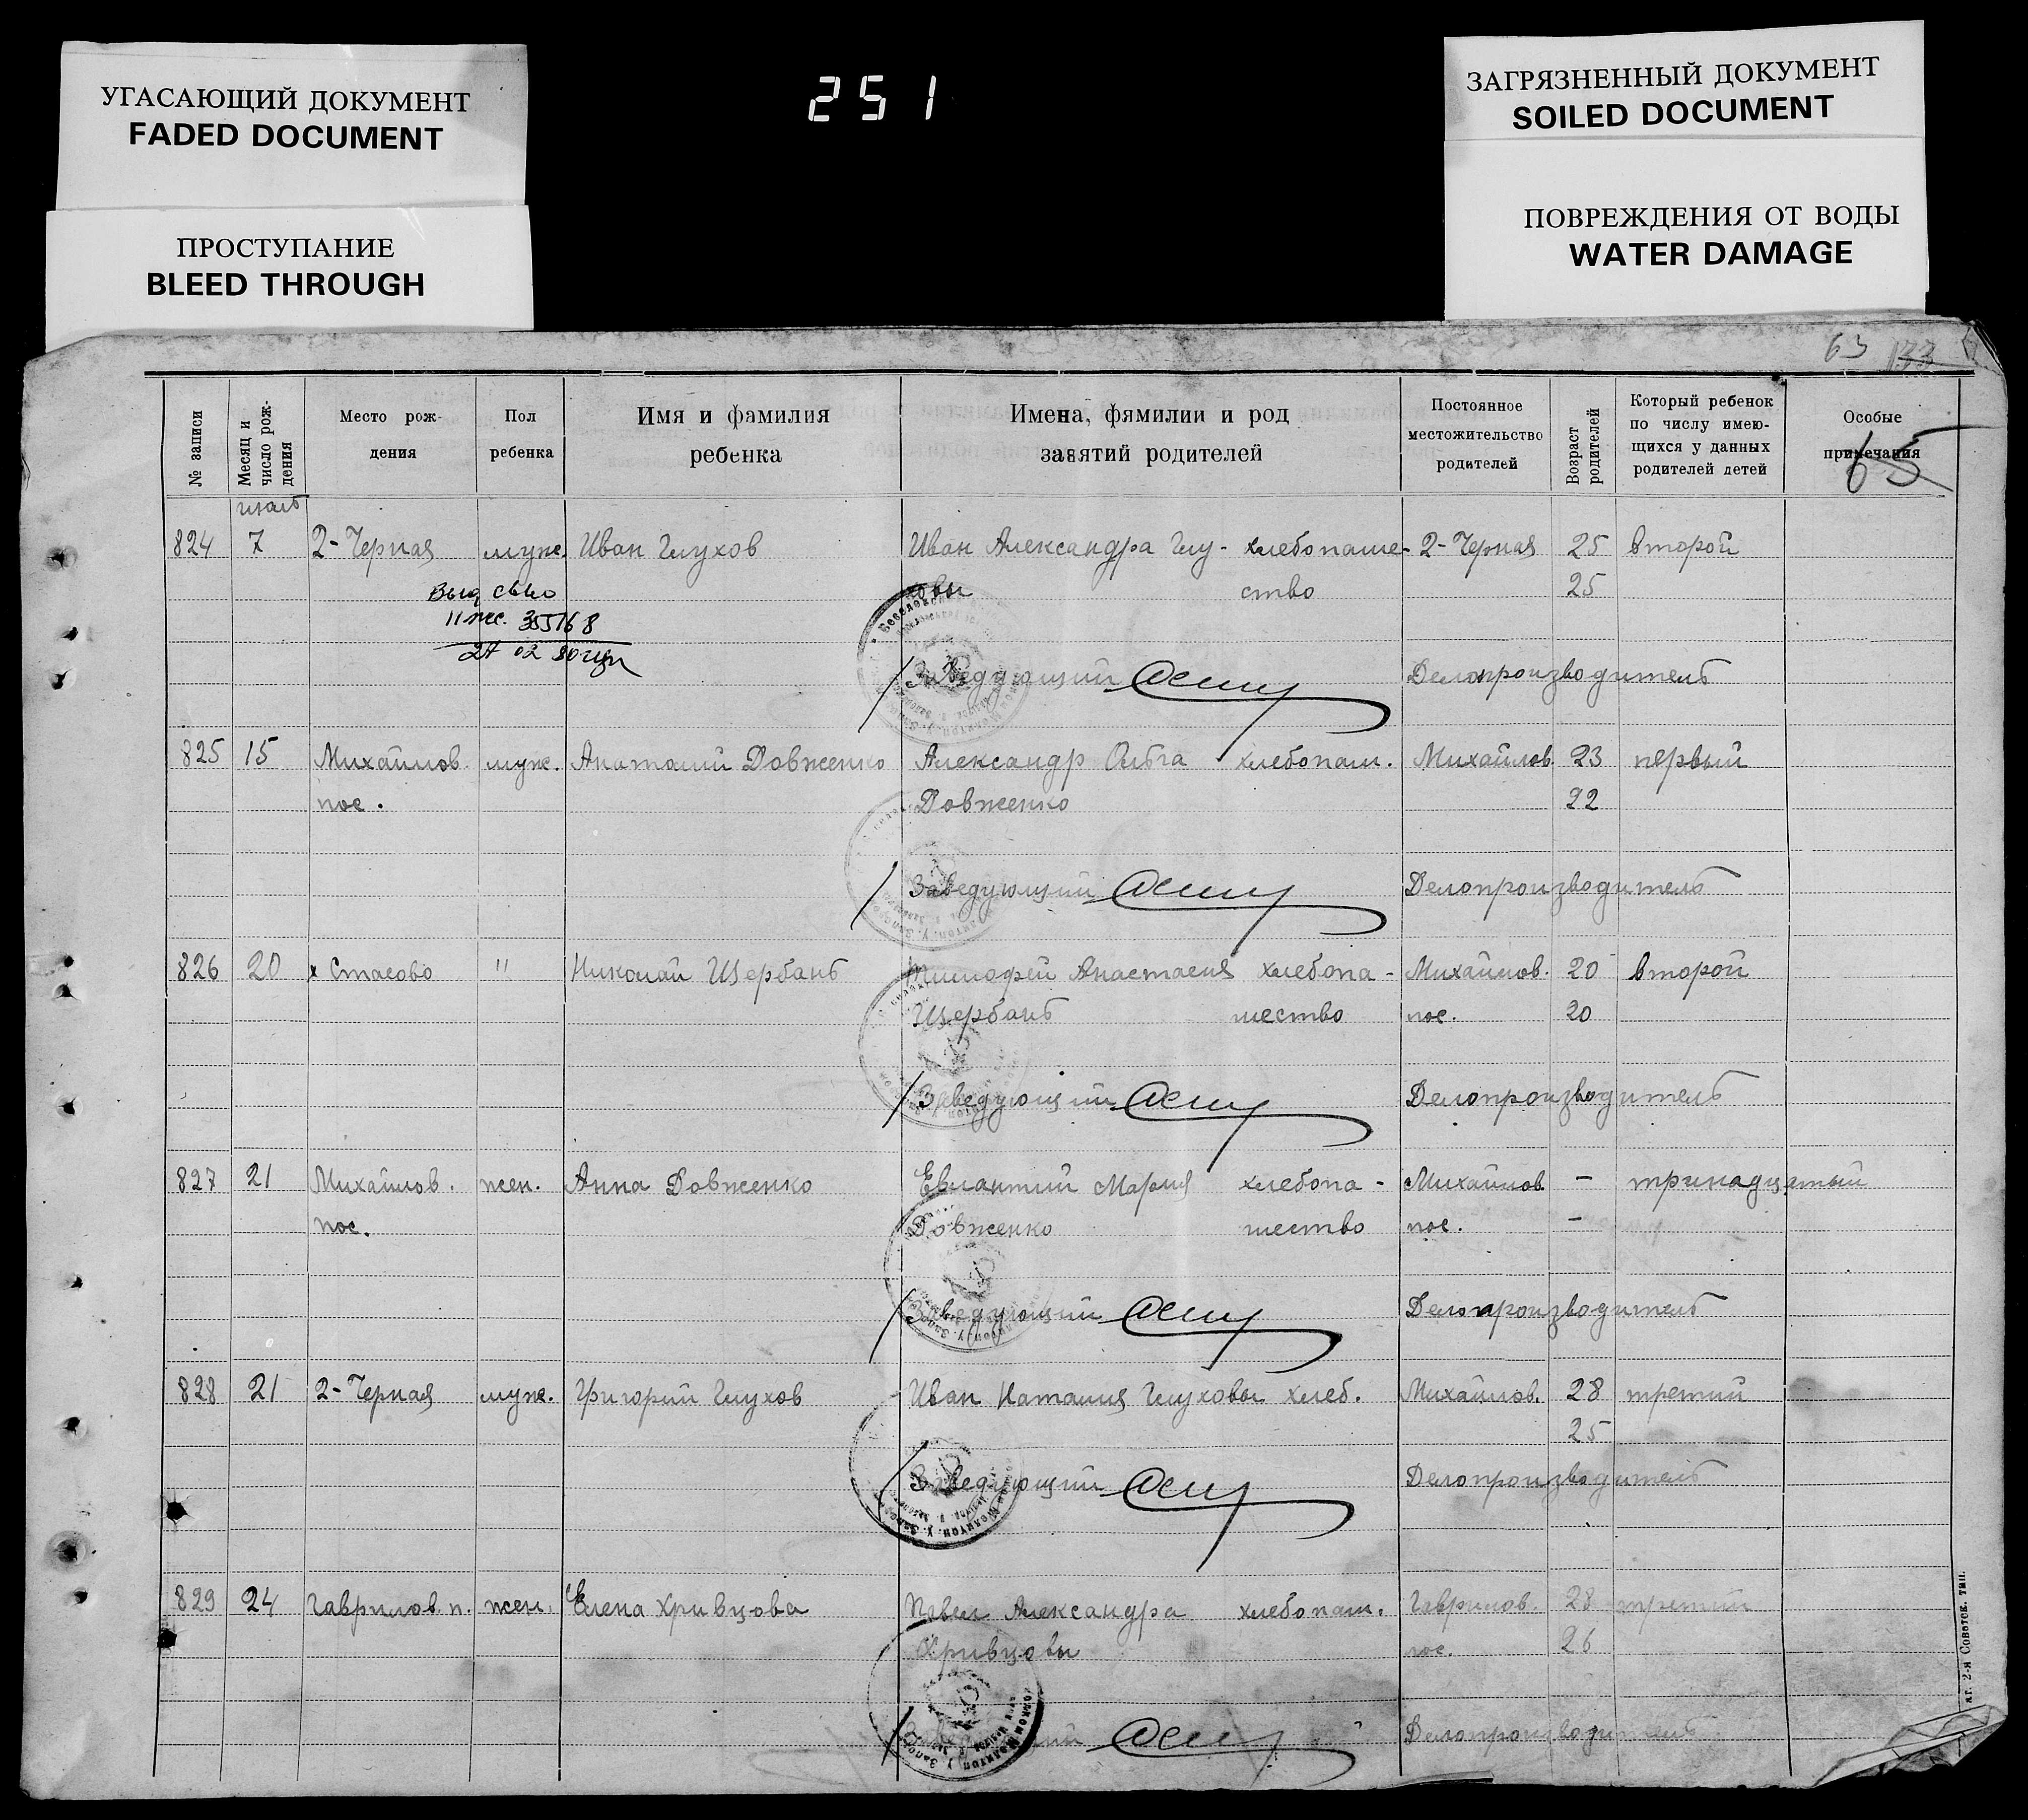 УГАСАЮЩИЙ ДОКУМЕНТ
FADED DOCUMENT
ПРОСТУПАНИЕ
BLEED THROUGH
251
ЗАГРЯЗНЕННЫЙ ДОКУМЕНТ
SOILED DOCUMENT
ПОВРЕЖДЕНИЯ ОТ ВОДЫ
WATER DAMAGE
63 133
№ записи
Месяц и число рож-дения
Место рож-дения
Пол ребенка
Имя и фамилия ребенка
Имена, фямилии и род занятий родителей
Постоянное местожительство родителей
Возраст родителей
Который ребенок по числу имею-щихся у данных родителей детей
Особые примечания
65
824 7 2-Черная муж. Иван Глухов Иван Александра Глу- хлебопаше- 2-Черная 25 второй
ховы ство 25
35516 8
27 02 80
Заведующий Делопроизводитель
825 15 Михайлов. муж. Анатолий Довженко Александр Ольга хлебопаш. Михайлов. 23 первый
пос. Довженко 22
Заведующий Делопроизводитель
826 20 х Стасово " Николай Щербань Тимофей Анастасия хлебопа- Михайлов. 20 второй
Щербань шество пос. 20
Заведующий Делопроизводитель
827 21 Михайлов. жен. Анна Довженко Евлантий Мария хлебопа- Михайлов. - тринадцатый
пос. Довженко шество пос. -
Заведующий Делопроизводитель
828 21 2-Черная муж. Григорий Глухов Иван Наталия Глуховы хлеб. Михайлов. 28 третий
25
Заведующий Делопроизводитель
829 24 Гаврилов. п. жен. Елена Хривцова Павел Александра хлебопаш. Гаврилов. 28 третий
Хривцовы пос. 26
Делопроизводитель
2-я Советск. тип.